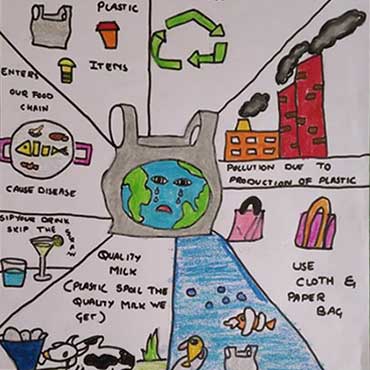 PLASTIC
ITEMS
ENTERS
OUR FOOD
CHAIN
CAUSE DISEASE
POLLUTION DUE TO
PRODUCTION OF PLASTIC
SIP YOUR DRINK
SKIP THE
STRAW
QUALITY
MILK
(PLASTIC SPOIL THE
QUALITY MILK WE
GET)
USE
CLOTH &
PAPER
BAG